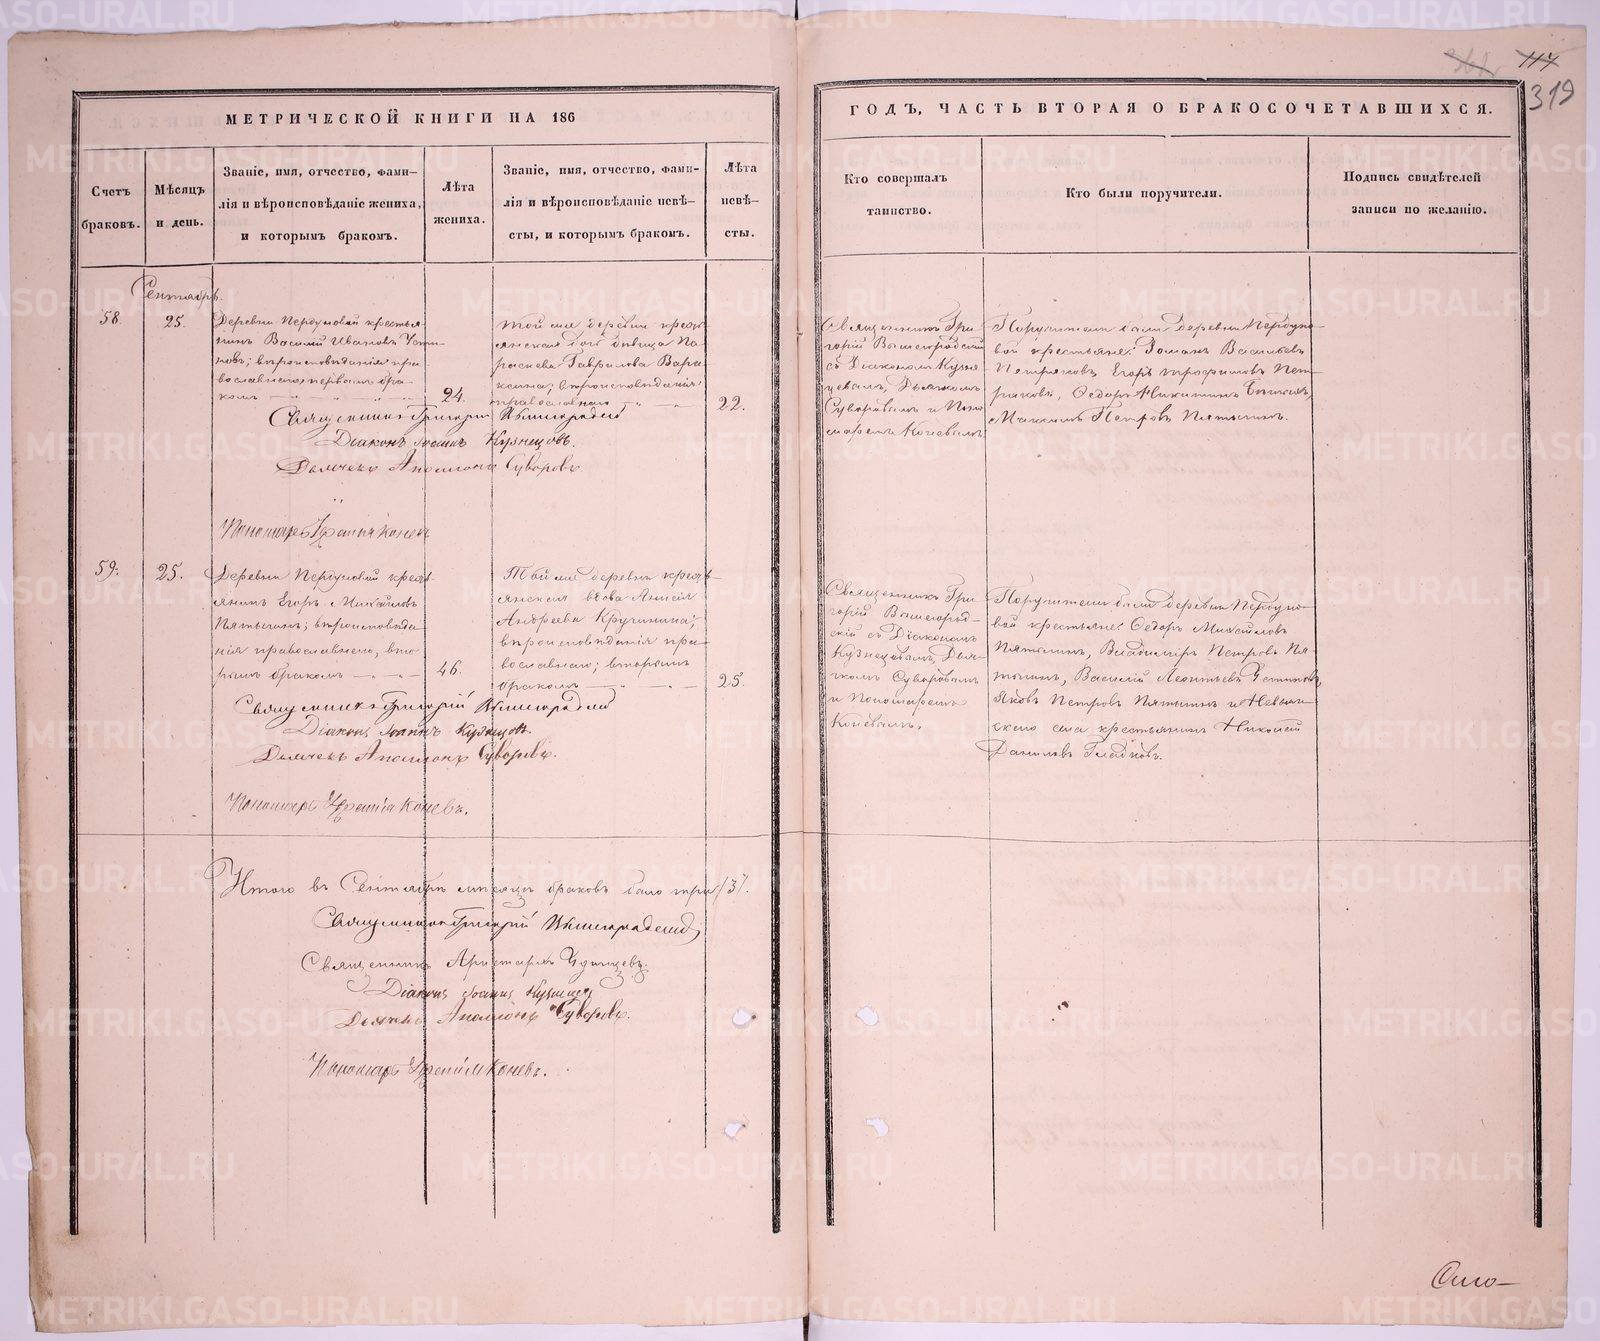 МЕТРИЧЕСКОЙ КНИГИ НА 186
Счетъ
браковъ.
Мѣсяцъ
и день.
Званіе, имя, отчество, фами-
лія и вѣроисповѣданіе жениха,
и которымъ бракомъ.
Лѣта
жениха.
Званіе, имя, отчество, фами-
лія и вѣроисповѣданіе невѣ-
сты, и которымъ бракомъ.
Лѣта
невѣ-
сты.
Сентябрь.
58.
25.
Деревни Первуновой крестья-
нинъ Василій Ивановъ Усти-
новъ; вѣроисповѣданія пра-
вославнаго, первымъ бра-
комъ
24.
Той же деревни кресть-
янская дочь дѣвица Па-
раскева Гаврилова Вара-
ксина; вѣроисповѣданія
православнаго
22.
Священникъ Григорій Вышегородскій
Діаконъ Іоаннъ Кузнецовъ.
Дьячекъ Аполлонъ Суворовъ.
Пономарь Коневъ
59.
25.
Деревни Первуновой кресть-
янинъ Егоръ Михайловъ
Пятыгинъ; вѣроисповѣда-
нія православнаго, вто-
рымъ бракомъ
46.
Той же деревни кресть-
янская вдова Анисія
Андреева Кручинина;
вѣроисповѣданія пра-
вославнаго; вторымъ
бракомъ
25.
Священникъ Григорій Вышегородскій
Діаконъ Іоаннъ Кузнецовъ.
Дьячекъ Аполлонъ Суворовъ.
Пономарь Коневъ.
Итого въ Сентябрѣ мѣсяцѣ браковъ было три /3/.
Священникъ Григорій Вышегородскій
Священникъ Аристархъ
Діаконъ Іоаннъ Кузнецовъ
Дьячекъ Аполлонъ Суворовъ.
Пономарь Коневъ.
117
319
ГОДЪ, ЧАСТЬ ВТОРАЯ О БРАКОСОЧЕТАВШИХСЯ.
Кто совершалъ
таинство.
Кто были поручители.
Подпись свидѣтелей
записи по желанію.
Священникъ Гри-
горій Вышегородскій
съ Діакономъ Кузне-
цовымъ, Дьячкомъ
Суворовымъ и Поно-
маремъ Коневымъ
Поручители были деревни Первуно-
вой крестьяне: Романъ Васильевъ
Петряковъ, Егоръ Трофимовъ Пет-
ряковъ, Ѳедоръ Никитинъ
Максимъ Петровъ Пятыгинъ.
Священникъ Гри-
горій Вышегород-
скій съ Діакономъ
Кузнецовымъ, Дья-
чкомъ Суворовымъ
и Пономаремъ
Коневымъ.
Поручители были деревни Первуно-
вой крестьяне: Ѳедоръ Михайловъ
Пятыгинъ, Владиміръ Петровъ Пя-
тыгинъ, Василій Леонтьевъ Устиновъ,
Яковъ Петровъ Пятыгинъ и Невьян-
скаго села крестьянинъ Николай
Даниловъ Гладковъ.
METRIKI.GASO-URAL.RU